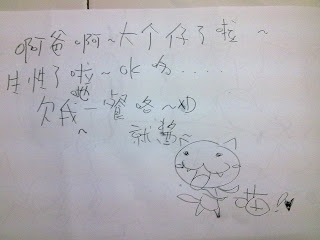 啊爸啊~大个仔了啦~
生性了啦~ok吻.....
欠我一餐咯~XD
她~
就整~
喵